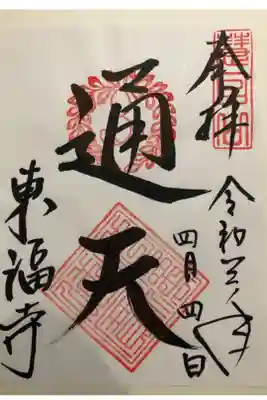 奉拝
令和三年
四月四日
通天
東福寺